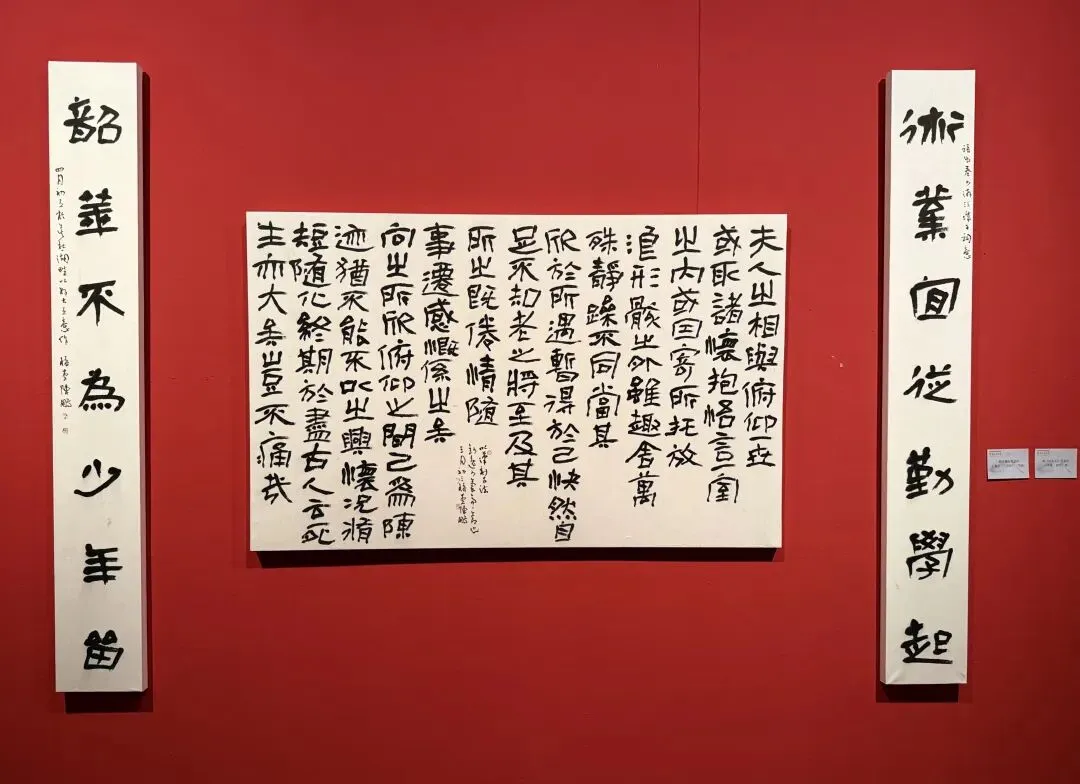 術業宜從勤學起
夫人之相與俯仰一世
或取諸懷抱悟言一室
之內或因寄所託放
浪形骸之外雖趣舍萬
殊靜躁不同當其
欣於所遇暫得於己快然自
足不知老之將至及其
所之既倦情隨
事遷感慨係之矣
向之所欣俯仰之間已為陳
迹猶不能不以之興懷況脩
短隨化終期於盡古人云死
生亦大矣豈不痛哉
韶華不為少年留